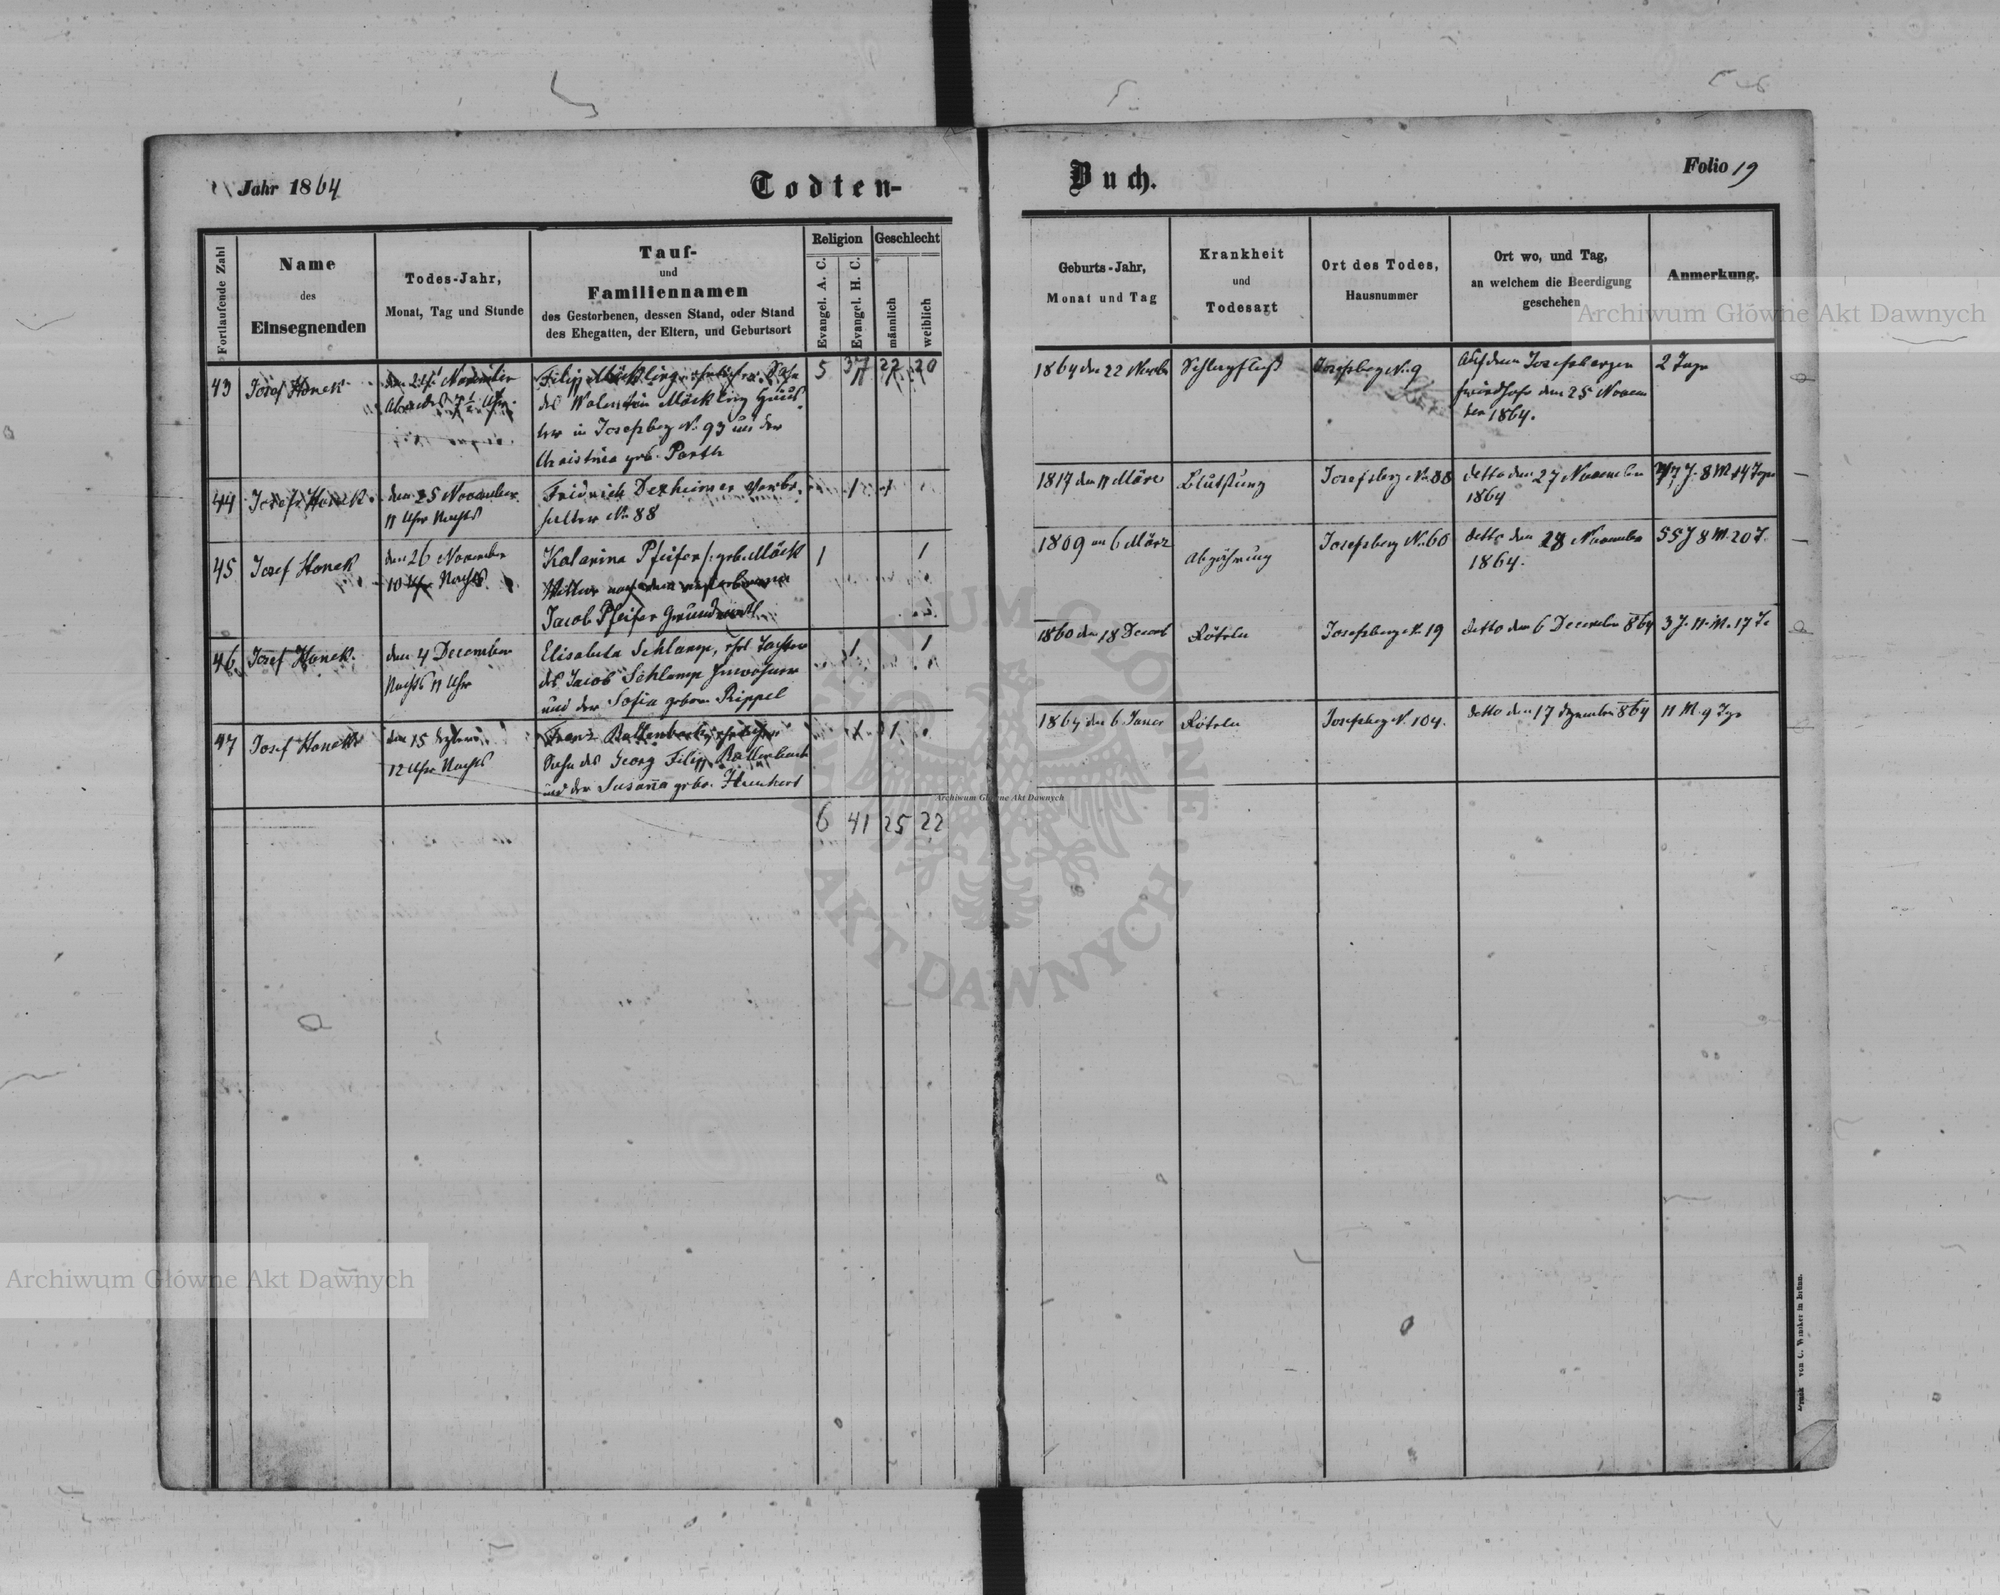 Jahr 1864
Todten-
Buch.
Folio 19
Fortlaufende Zahl
Name
des
Einsegnenden
Todes-Jahr,
Monat, Tag und Stunde
Tauf-
und
Familiennamen
des Gestorbenen, dessen Stand, oder Stand
des Ehegatten, der Eltern, und Geburtsort
Religion
Evangel. A. C.
Evangel. H. C.
Geschlecht
männlich
weiblich
Geburts-Jahr,
Monat und Tag
Krankheit
und
Todesart
Ort des Todes,
Hausnummer
Ort wo, und Tag,
an welchem die Beerdigung
geschehen
Anmerkung.
43
Josef Honek
den 24 November
Abends Uhr
Filip Möckling ehelicher Sohn
des Walentin Möckling
in Josefsberg N. 93 und der
Christina geb. Parth
5 37 22 20
1864 den 22 Novb
Josefsberg N. 9
Auf dem Josefsberger
Friedhofe den 25 Novem
ber 1864.
2 Tage
44
Josef Honek
den 25 November
11 Uhr Nachts
Fridrich Dexheimer
N. 88
1 1
1817 den 11 März
Josefsberg N. 88
detto den 27 November
1864
47 J. 8 M. 14 Tage
45
Josef Honek
den 26 November
10 Uhr Nachts
Katarina Pfeifer geb. Möck
Witwe nach dem verstorbenen
Jacob Pfeifer Grundwirth
1 1
1809 am 6 März
Abzehrung
Josefsberg N. 60
detto den 28 November
1864.
55 J 8 M. 20 T.
46
Josef Honek
den 4 December
Nachts 11 Uhr
Elisabeta Schlamp, ehel Tochter
des Jacob Schlamp Inwohner
und der Sofia geborn Rippel
1 1
1860 den 18 Decemb
Röteln
Josefsberg N. 19
detto den 6 December 864
3 J. 11 M. 17 T.
47
Josef Honek
den 15 Dezember
12 Uhr Nachts
Franz Rollenbach, ehelicher
Sohn des Georg Filip Rollenbach
und der Susanna gebo. Hunkert
1 1
1864 den 6 Janer
Röteln
Josefsberg N. 104.
detto den 17 Dezember 864
11 M 9 Tge
6 41 25 22
Druck von C. Winiker in Brünn.
Archiwum Główne Akt Dawnych
Archiwum Główne Akt Dawnych
Archiwum Główne Akt Dawnych
ARCHIWUM GŁÓWNE AKT DAWNYCH